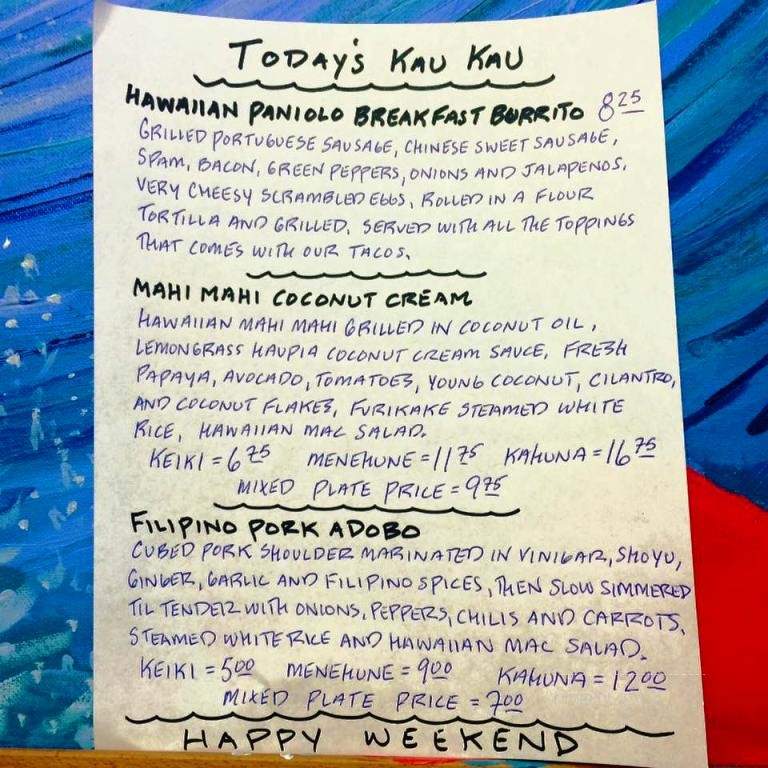 TODAY'S KAU KAU
HAWAIIAN PANIOLO BREAKFAST BURRITO 8 25
GRILLED PORTUGUESE SAUSAGE, CHINESE SWEET SAUSAGE,
SPAM, BACON, GREEN PEPPERS, ONIONS AND JALAPENOS,
VERY CHEESY SCRAMBLED EGGS, ROLLED IN A FLOUR
TORTILLA AND GRILLED. SERVED WITH ALL THE TOPPINGS
THAT COMES WITH OUR TACOS.
MAHI MAHI COCONUT CREAM
HAWAIIAN MAHI MAHI GRILLED IN COCONUT OIL,
LEMONGRASS HAUPIA COCONUT CREAM SAUCE, FRESH
PAPAYA, AVOCADO, TOMATOES, YOUNG COCONUT, CILANTRO,
AND COCONUT FLAKES, FURIKAKE STEAMED WHITE
RICE, HAWAIIAN MAC SALAD.
KEIKI = 6 75 MENEHUNE = 11 75 KAHUNA = 16 75
MIXED PLATE PRICE = 9 75
FILIPINO PORK ADOBO
CUBED PORK SHOULDER MARINATED IN VINIGAR, SHOYU,
GINGER, GARLIC AND FILIPINO SPICES, THEN SLOW SIMMERED
TIL TENDER WITH ONIONS, PEPPERS, CHILIS AND CARROTS.
STEAMED WHITE RICE AND HAWAIIAN MAC SALAD.
KEIKI = 5 00 MENEHUNE = 9 00 KAHUNA = 12 00
MIXED PLATE PRICE = 7 00
HAPPY WEEKEND